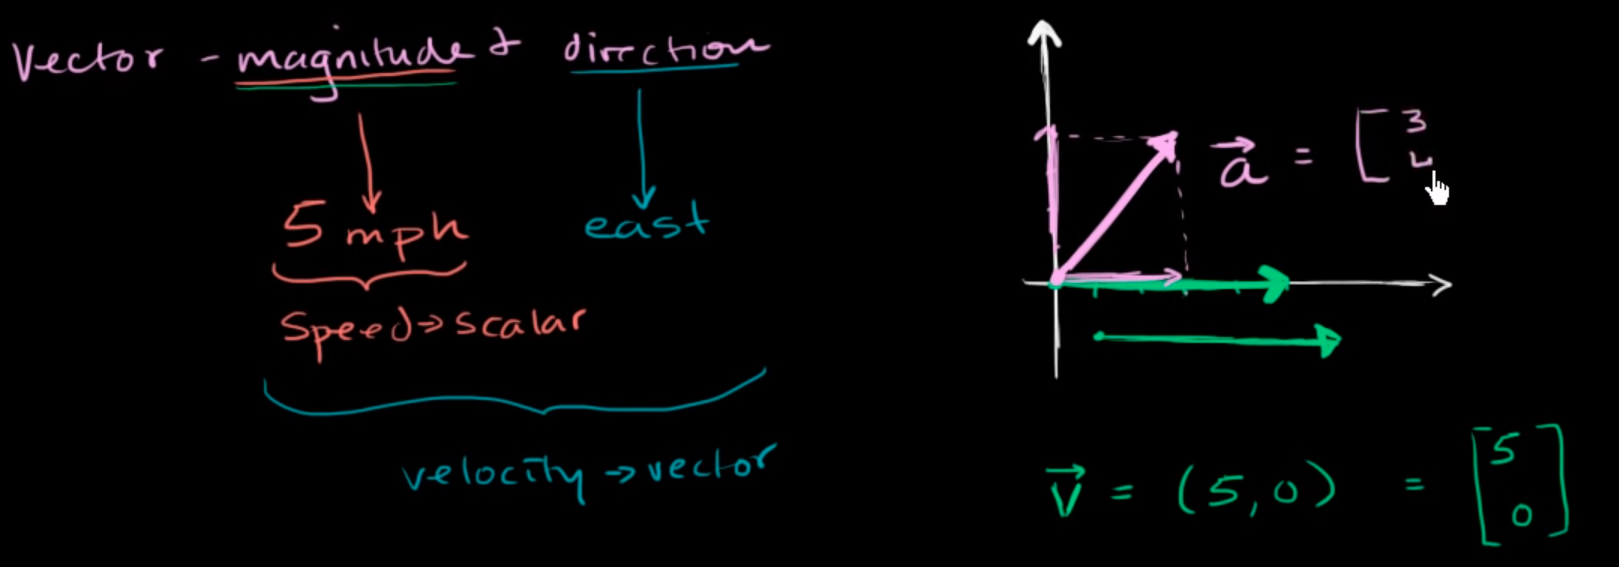 Vector - magnitude & direction
5 mph
east
Speed => scalar
velocity → vector
a = [3
4
v = (5, 0) = [5
0]